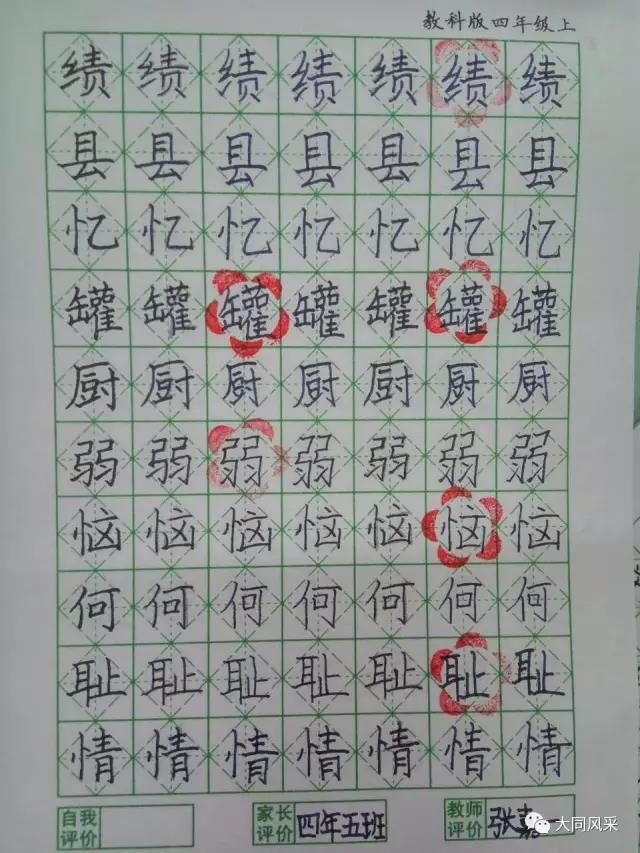 教科版四年级上
绩绩绩绩绩绩绩
县县县县县县县
忆忆忆忆忆忆忆
罐罐罐罐罐罐罐
厨厨厨厨厨厨厨
弱弱弱弱弱弱弱
恼恼恼恼恼恼恼
何何何何何何何
耻耻耻耻耻耻耻
情情情情情情情
自我评价 家长评价 四年五班 教师评价 张嘉一
大同风采